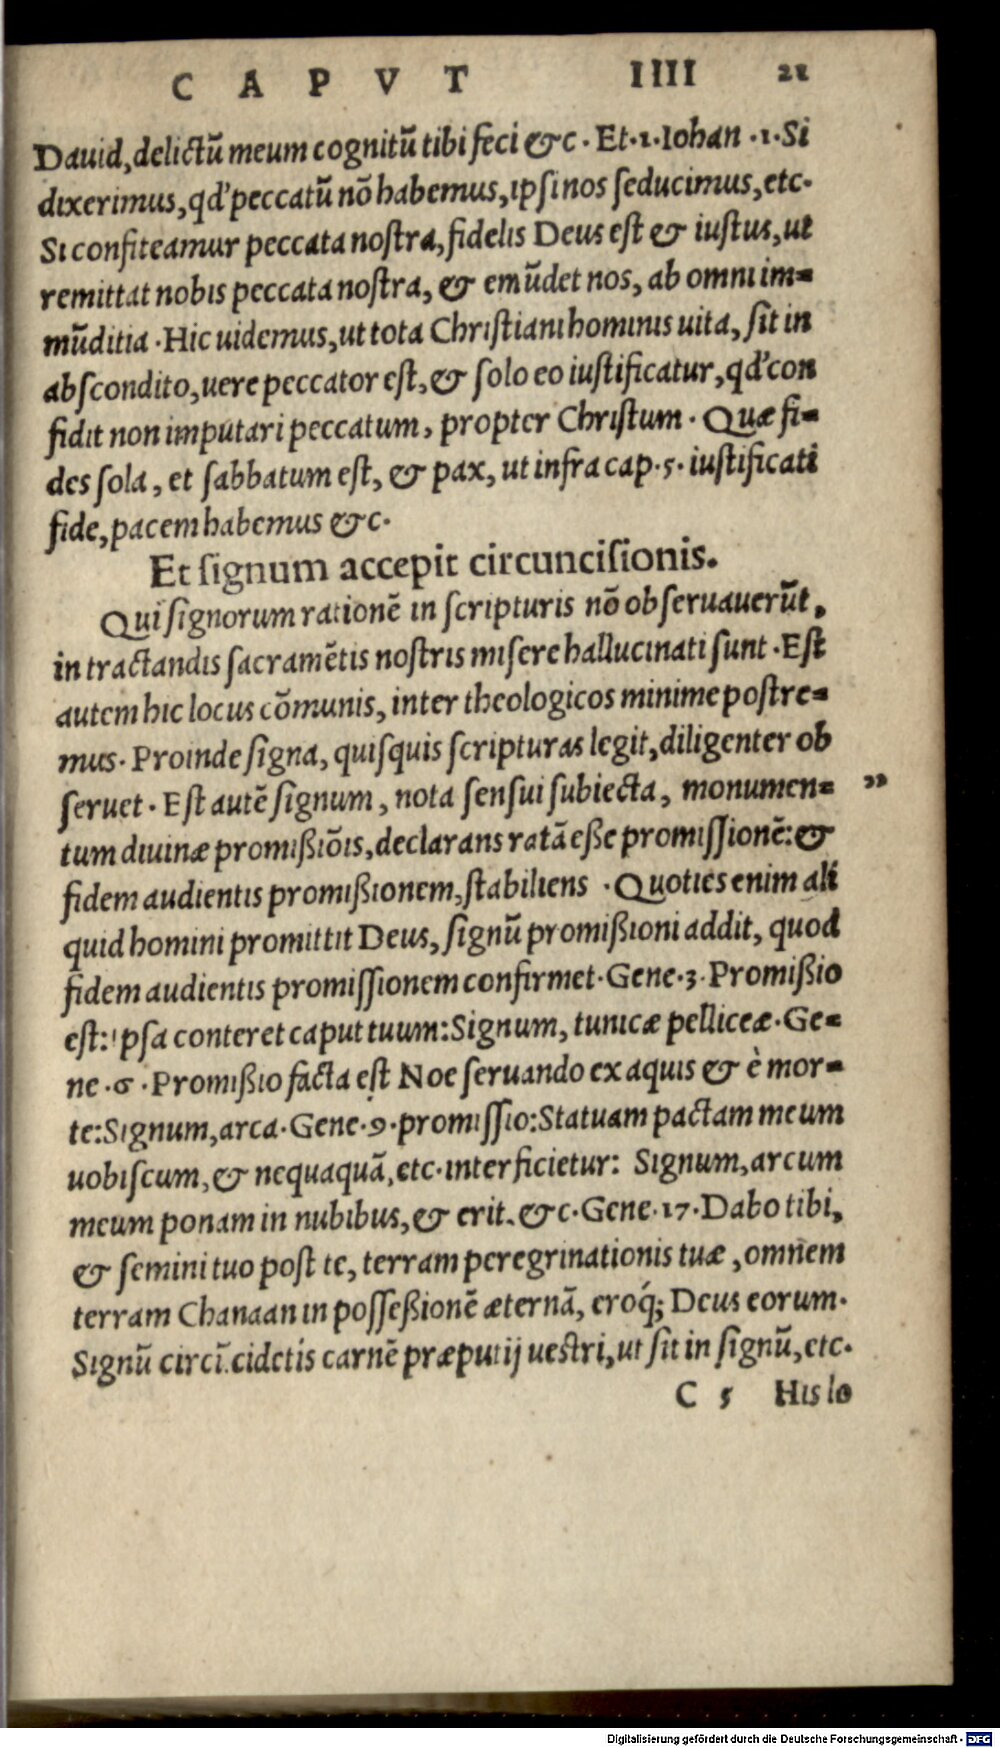 CAPVT IIII 21
Dauid, delictū meum cognitū tibi feci &c. Et.1.Iohan.1.Si
dixerimus, qď peccatū nō habemus, ipsi nos seducimus, etc.
Si confiteamur peccata nostra, fidelis Deus est & iustus, ut
remittat nobis peccata nostra, & emūdet nos, ab omni im=
mūditia. Hic uidemus, ut tota Christiani hominis uita, sit in
abscondito, uere peccator est, & solo eo iustificatur, qď con
fidit non imputari peccatum, propter Christum. Quæ fi=
des sola, et sabbatum est, & pax, ut infra cap.5. iustificati
fide, pacem habemus &c.
Et signum accepit circuncisionis.
Qui signorum rationē in scripturis nō obseruauerūt,
in tractandis sacramētis nostris misere hallucinati sunt. Est
autem hic locus cōmunis, inter theologicos minime postre=
mus. Proinde signa, quisquis scripturas legit, diligenter ob
seruet. Est autē signum, nota sensui subiecta, monumen= „
tum diuinæ promißiōis, declarans ratā eße promissionē: &
fidem audientis promißionem, stabiliens. Quoties enim ali
quid homini promittit Deus, signū promißioni addit, quod
fidem audientis promissionem confirmet. Gene.3. Promißio
est: Ipsa conteret caput tuum: Signum, tunicæ pelliceæ. Ge=
ne.6. Promißio facta est Noe seruando ex aquis & è mor=
te: Signum, arca. Gene.9. promissio: Statuam pactam meum
uobiscum, & nequaquā, etc. interficietur: Signum, arcum
meum ponam in nubibus, & erit. &c. Gene.17. Dabo tibi,
& semini tuo post te, terram peregrinationis tuæ, omnem
terram Chanaan in posseßionē æternā, eroq́; Deus eorum.
Signū circī.cidetis carnē præputij uestri, ut sit in signū, etc.
C 5 His lo
Digitalisierung gefördert durch die Deutsche Forschungsgemeinschaft - DFG